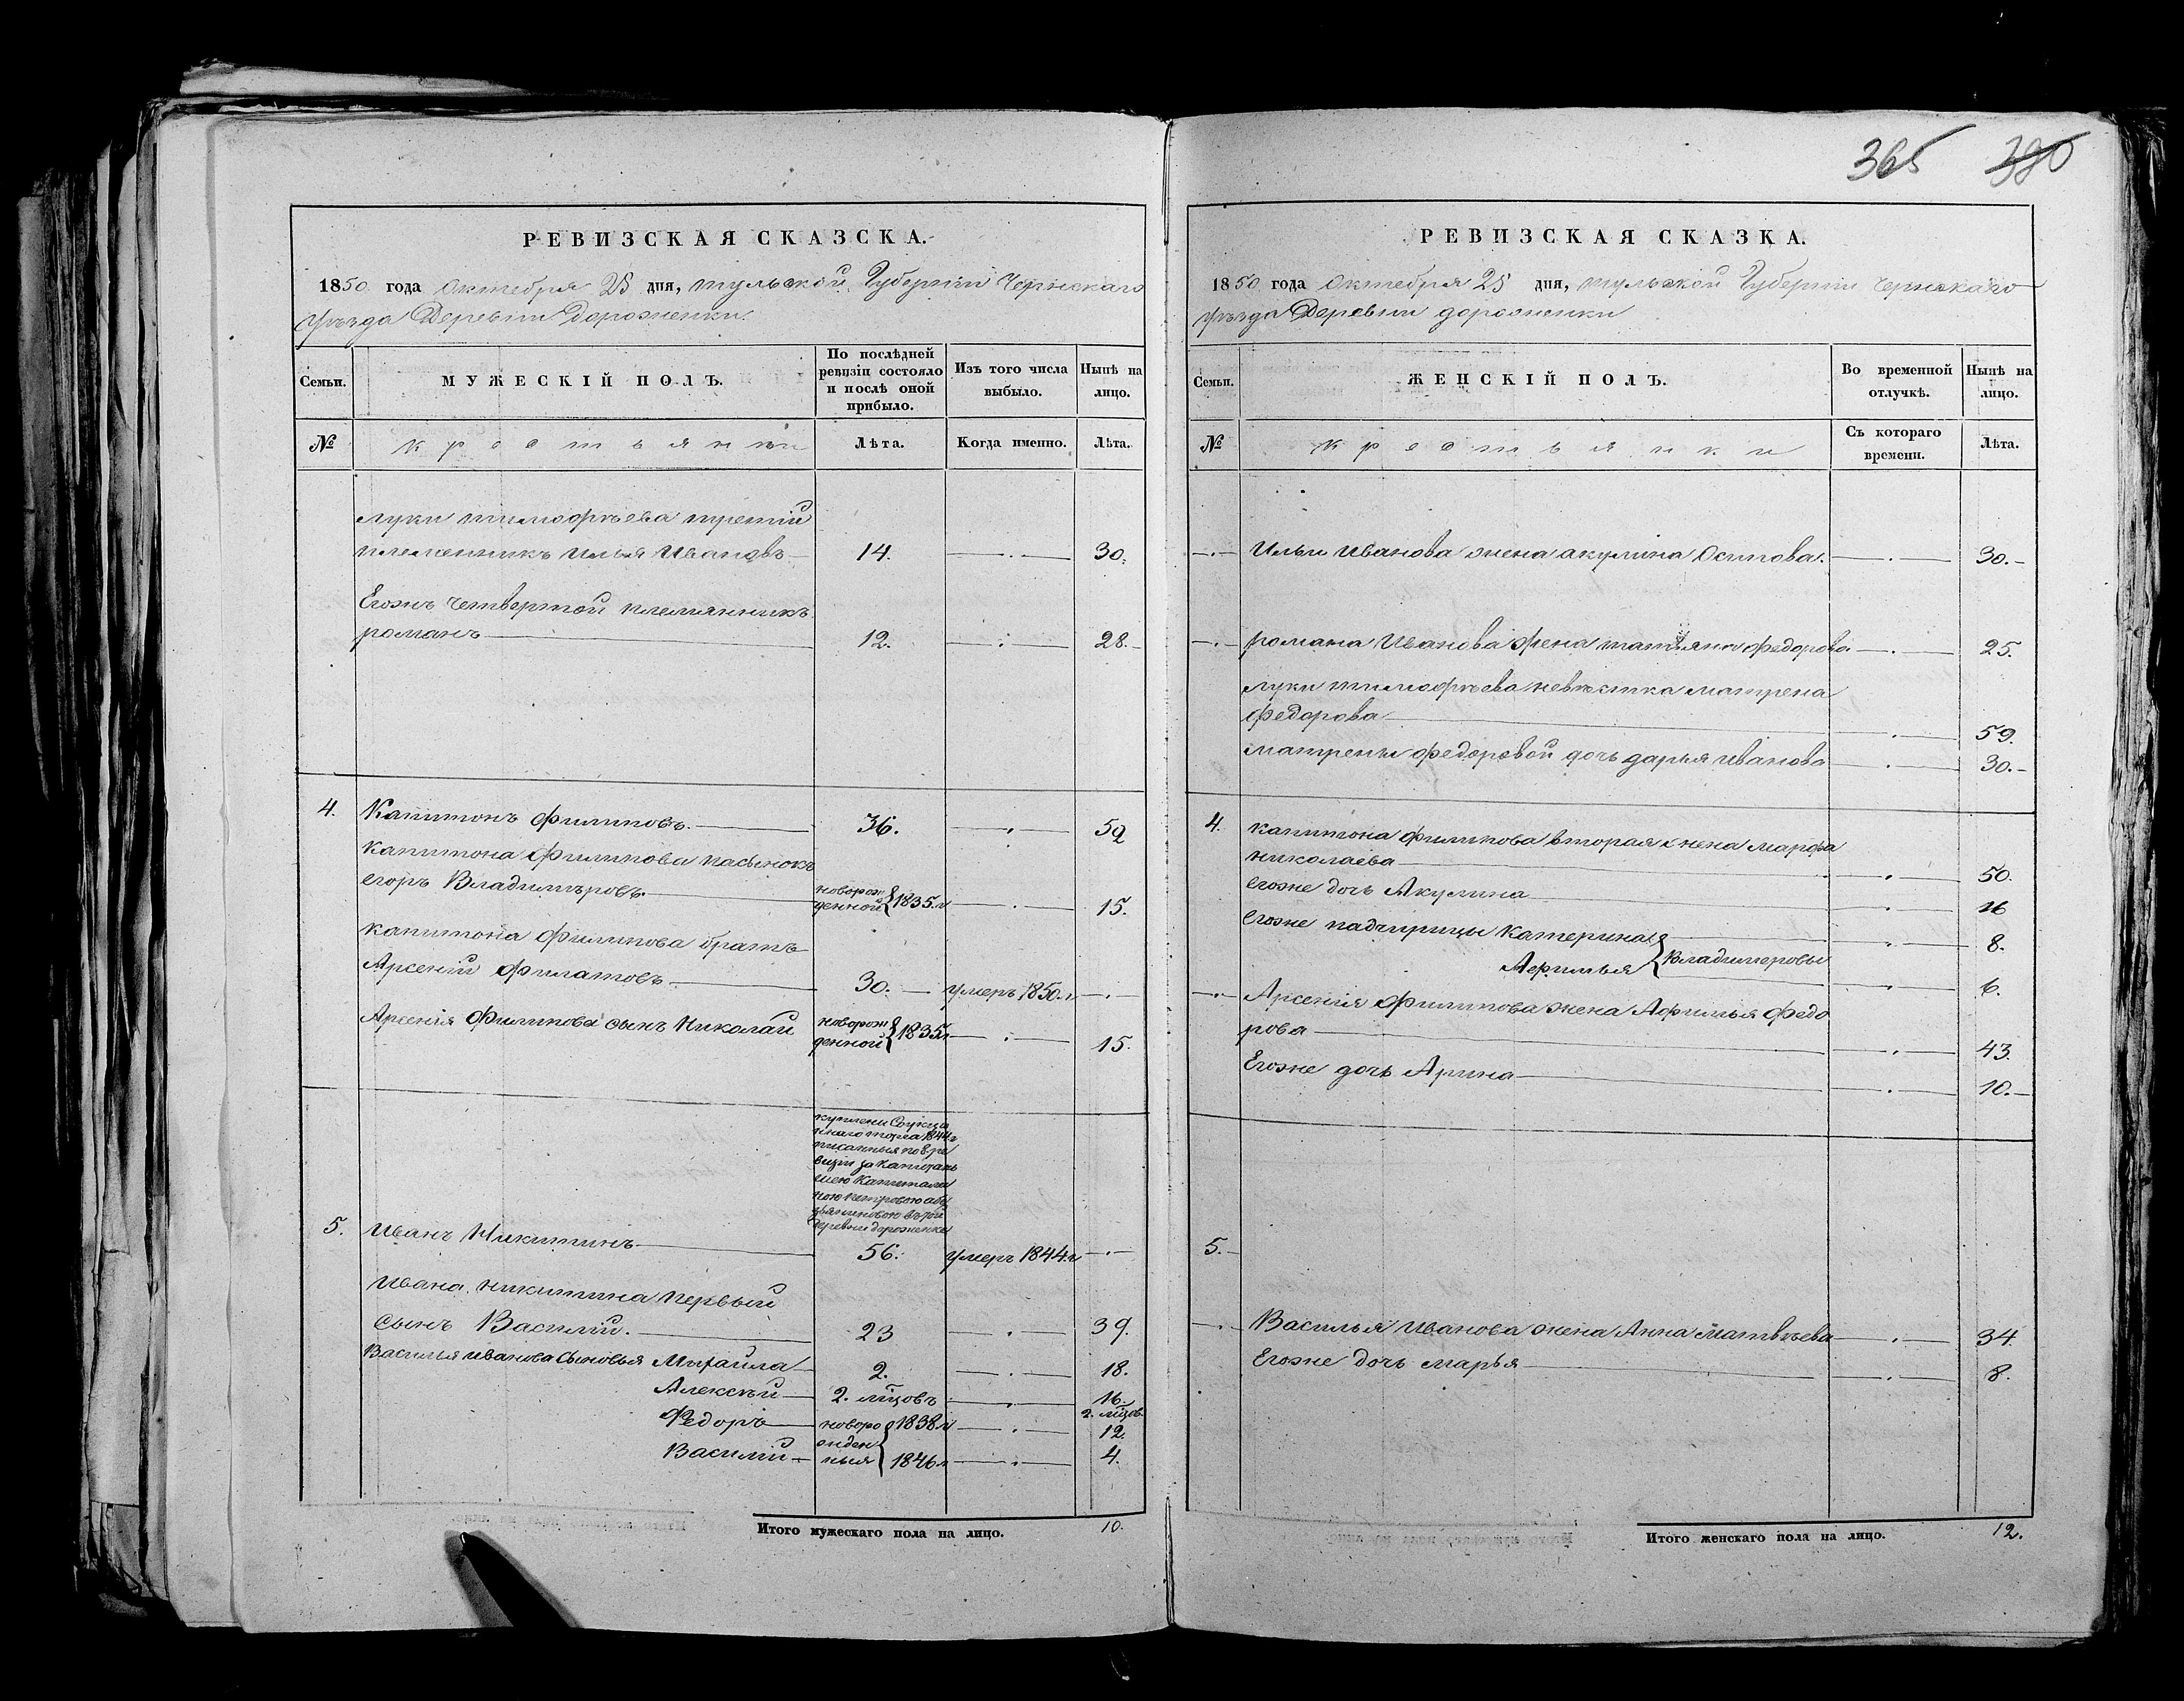 365 390
РЕВИЗСКАЯ СКАЗСКА.
1850 года Октебря 25 дня, тульской Губерніи Чернскаго
уъзда Деревни Дороженки.
Семьи.
МУЖЕСКІЙ ПОЛЪ.
По послѣдней ревизіи состояло и послѣ оной прибыло.
Изъ того числа выбыло.
Нынѣ на лицо.
№
крестьянѣи
Лѣта.
Когда именно.
Лѣта.
луки тимофѣева третій
племенникъ Илья Ивановъ 14. 30.
Егожъ четвертой племянникъ
романъ 12. 28.
4. Капитонъ филиповъ. 36. 52
капитона филипова пасынокъ
егоръ Владимѣровъ новорож денной 1835.г 15.
капитона филипова братъ
Арсеній филатовъ 30. умеръ 1850.г
Арсенія филипова сынъ Николай новорож денной 1835г 15.
куплены Саукцы
оннаго торга 1844г
писанныя по 8.ре
визіи за капитань
шею
ною петровою
въ той
деревни дороженке
5. Иванъ Никитинъ 56. умеръ 1844.г
Ивана никитина первый
сынъ Василій. 23 39.
Василья иванова сыновья Михаила 2. 18.
Алексѣй 2. мѣцовъ 16. 2. мѣцов.
Федоръ новоро 1838.г 12.
Василій жден ныя 1846.г 4.
Итого мужескаго пола на лицо. 10.
РЕВИЗСКАЯ СКАЗКА.
1850 года Октебря 25 дня, тульской Губерніи чернскаго
уъзда Деревни дороженки
Семьи.
ЖЕНСКІЙ ПОЛЪ.
Во временной отлучкѣ.
Нынѣ на лицо.
№
крестьянки
Съ котораго времени.
Лѣта.
Ильи Иванова жена акулина Осипова. 30.
романа Иванова жена татьяна федорова 25.
луки тимофѣева невѣстка матрена
федорова 59.
матрены федоровой дочь дарья иванова 30.
4. капитона филипова вторая жена марфа
николаева 50.
егоже дочь Акулина 16
егоже падчирицы катерина 8.
Афимья Владимеровы 6.
Арсенія филипова жена Афимья Федо
рова 43.
Егоже дочь Арина 10.
5.
Василья иванова жена Анна Матвѣева 34.
Егоже дочь марья 8.
Итого женскаго пола на лицо. 12.